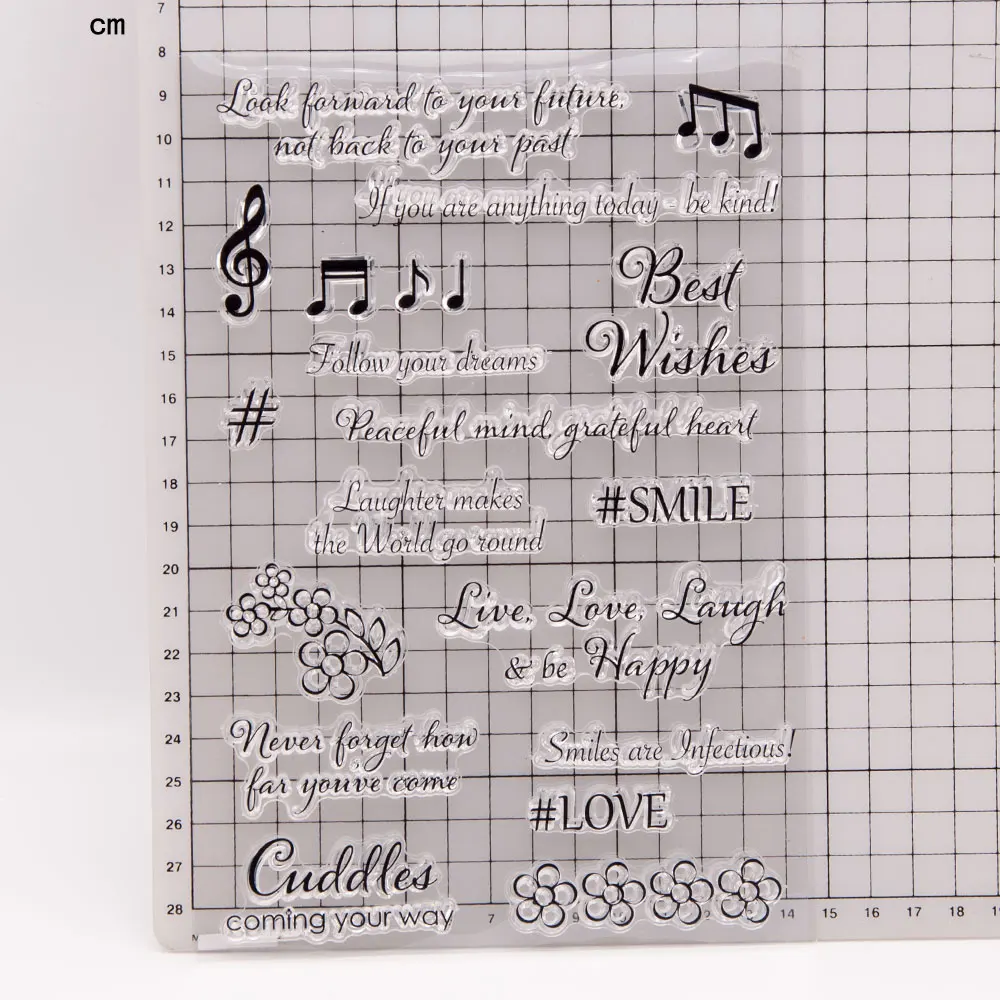 cm
7
8
9
10
11
12
13
14
15
16
17
18
19
20
21
22
23
24
25
26
27
28
Look forward to your future,
not back to your past
If you are anything today - be kind!
Best
Wishes
Follow your dreams
#
Peaceful mind, grateful heart
Laughter makes
the World go round
#SMILE
Live, Love, Laugh
& be Happy
Never forget how
far you've come
Smiles are Infectious!
#LOVE
Cuddles
coming your way
7 9 12 13 14 15 16 17 18